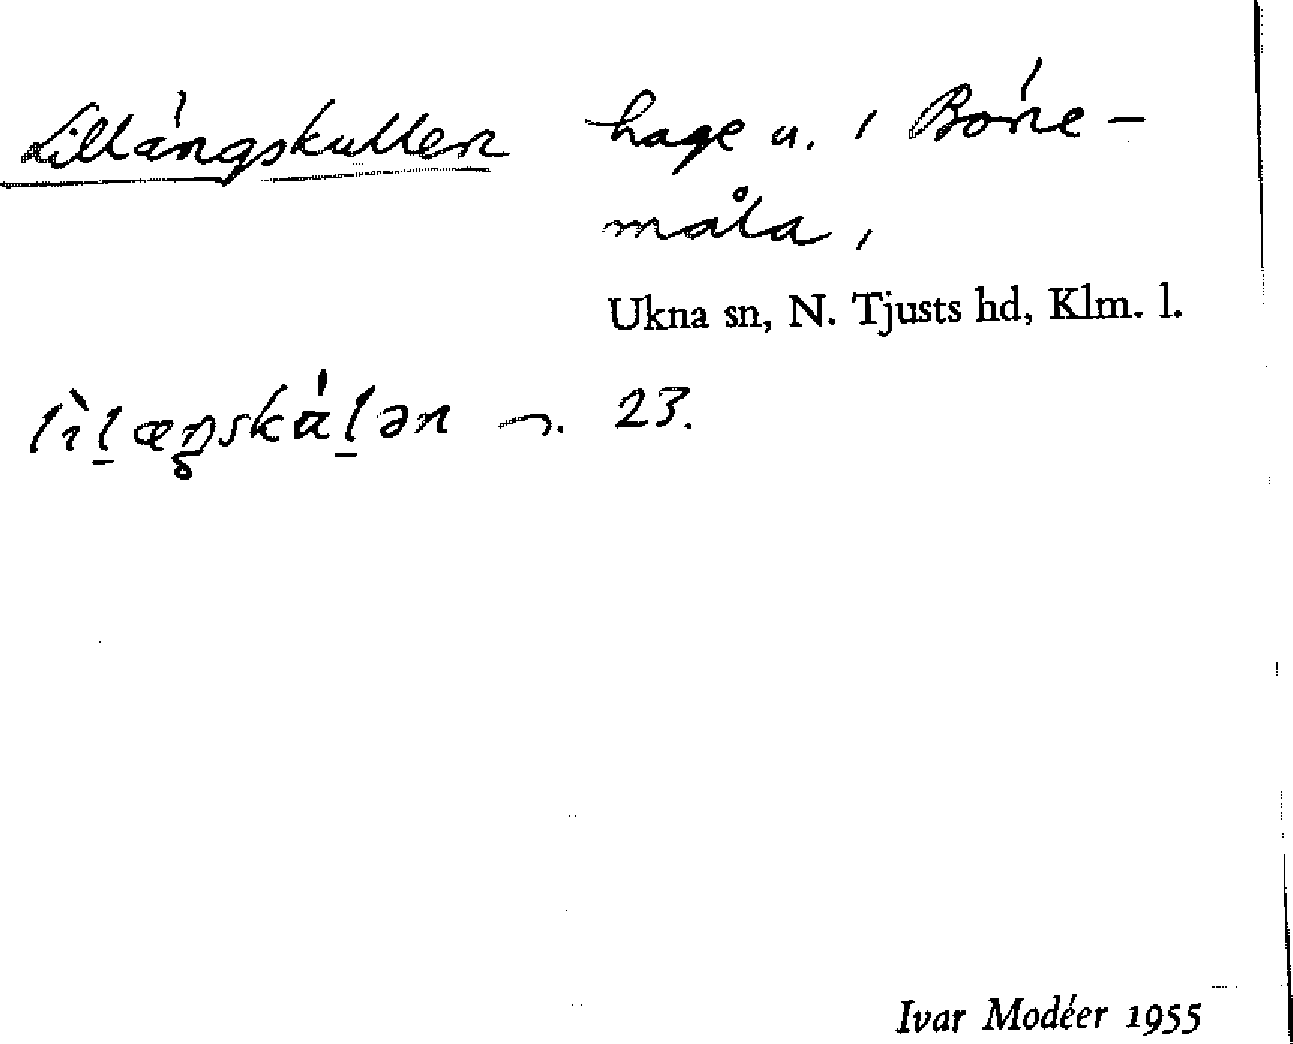 Lillängskullen hage u. 1 Böne-
måla,
Ukna sn, N. Tjusts hd, Klm. l.
lìlæŋskálən ¬. 23.
Ivar Modéer 1955